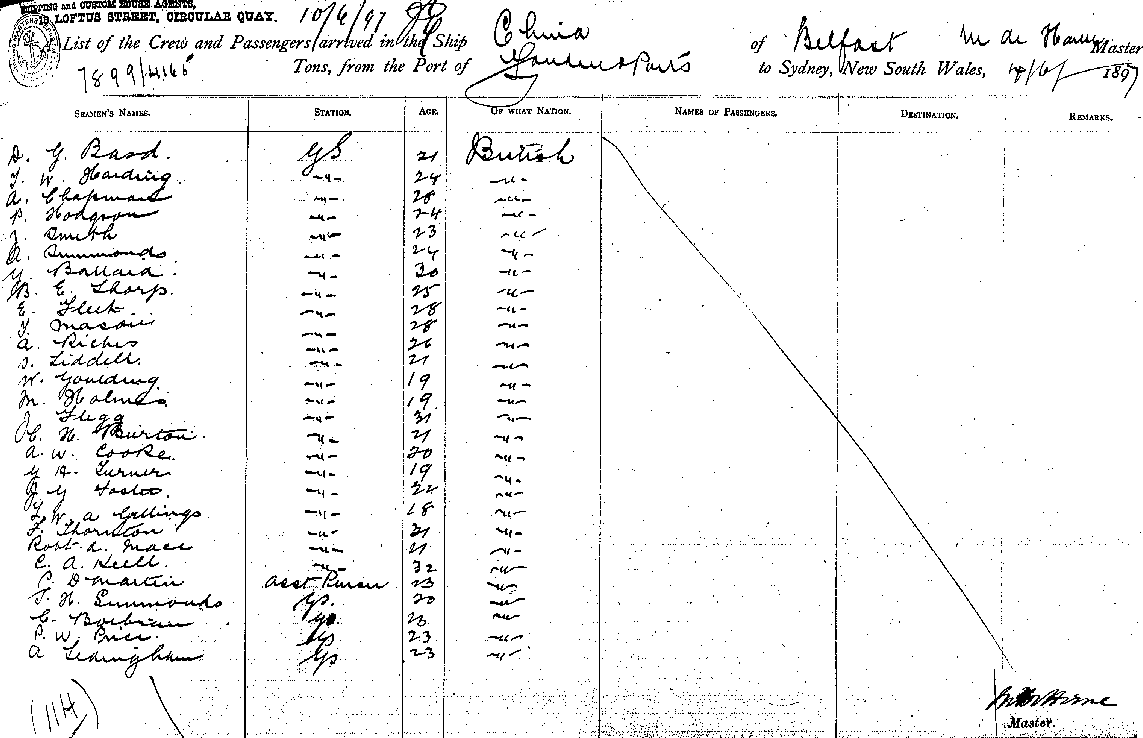 SHIPPING and CUSTOM HOUSE AGENTS,
LOFTUS STREET, CIRCULAR QUAY. 10/6/97
List of the Crew and Passengers arrived in the Ship China of Belfast Master
7899/4165 Tons, from the Port of London & Ports to Sydney, New South Wales, 1897
SEAMEN'S NAMES. STATION. AGE. OF WHAT NATION. NAMES OF PASSENGERS. DESTINATION. REMARKS.
D. G. Bard. GS 21 British
W. Harding. -"- 24 -"-
A. Chapman -"- 28 -"-
P. Hodgson -"- 24 -"-
J. Smith -"- 23 -"-
A. Simmonds -"- 24 -"-
G. Ballard. -"- 30 -"-
B. E. Thorp. -"- 25 -"-
E. Fleet. -"- 28 -"-
Mason -"- 28 -"-
A. Riches -"- 26 -"-
S. Liddell. -"- 21 -"-
W. Goulding -"- 19 -"-
M. Holmes -"- 19 -"-
J. Flegg -"- 31 -"-
C. H. Burton. -"- 21 -"-
A. W. Cooke. -"- 20 -"-
G H. Turner -"- 19 -"-
G Foster. -"- 22 -"-
W. A Gillings -"- 18 -"-
F. Thornton -"- 21 -"-
Robt L. Mace -"- 21 -"-
C. A. Hell. -"- 32 -"-
D Martin Asst Purser 23 -"-
H. Simmonds GS. 20 -"-
C. GS. 23 -"-
P. W. Price. GS 23 -"-
A Ledingham GS 23 -"-
(114)
Master.